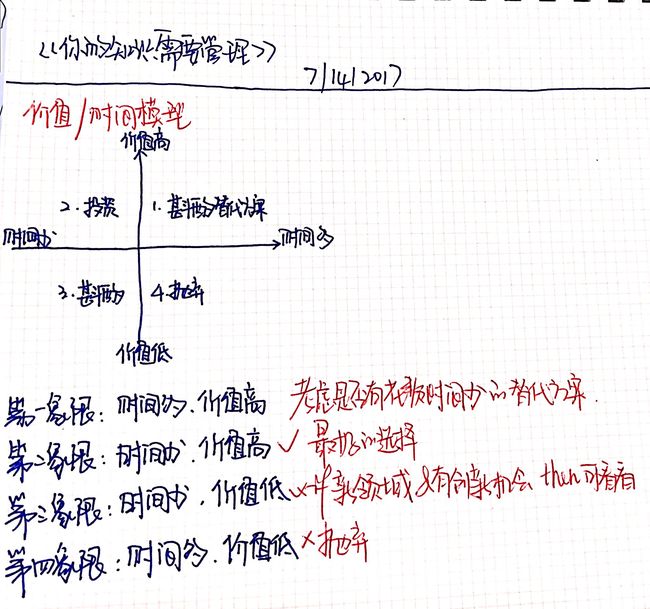 《你的知识需要管理》
7/14/2017
价值/时间模型
价值高
2.投资 1.斟酌替代方案
时间少 时间多
3.斟酌 4.抛弃
价值低
第一象限:时间多.价值高 考虑是否有花费时间少的替代方案.
第二象限:时间少.价值高 ✓ 最好的选择
第三象限:时间少.价值低 新领域&有创新机会 then可看看
第四象限:时间多.价值低 ×抛弃